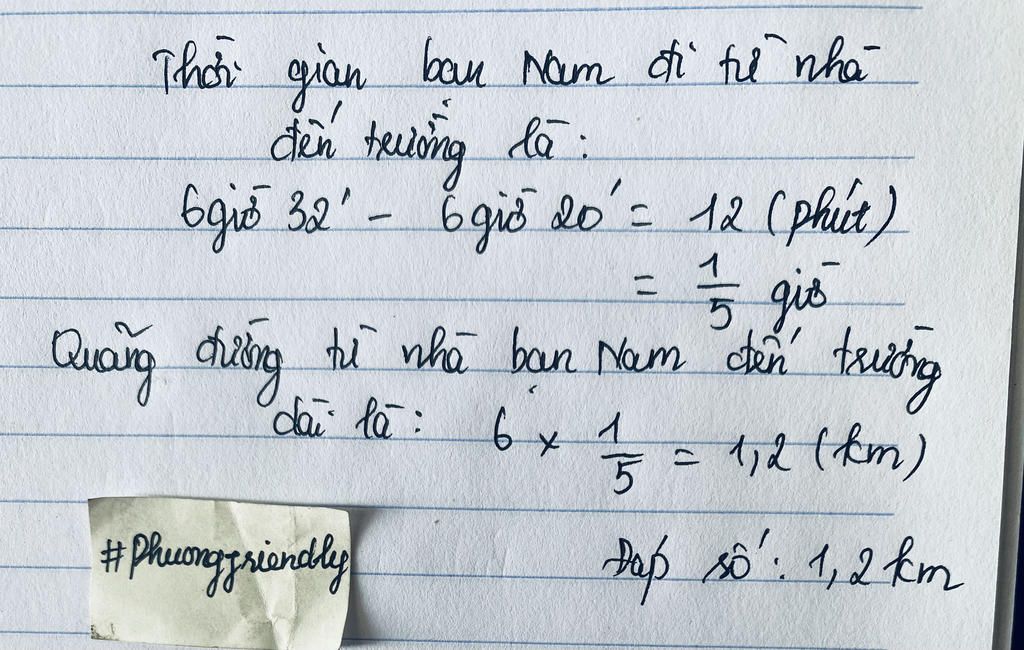 Thời gian bạn Nam đi từ nhà
đến trường là:
6giờ 32' - 6giờ 20' = 12 (phút)
= 1/5 giờ
Quãng đường từ nhà bạn Nam đến trường
dài là: 6 × 1/5 = 1,2 (km)
#phuongfriendly
Đáp số: 1,2 km